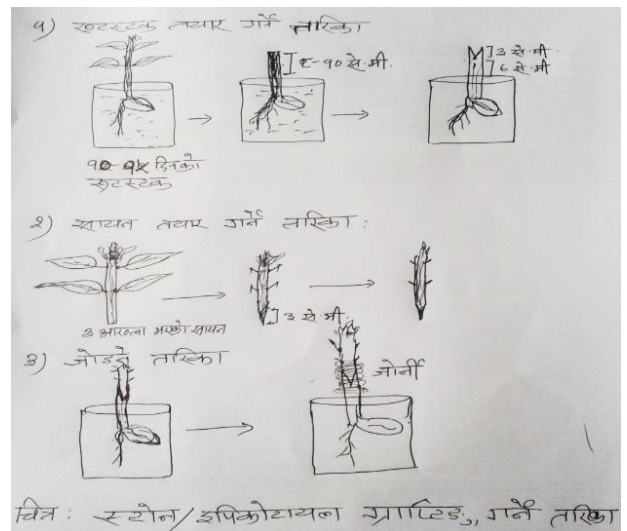 १) रुटस्टक तयार गर्ने तरिका
८-१० से.मी.
३ से.मी
६ से.मी
१०-१५ दिनको
रुटस्टक
२) सायन तयार गर्ने तरिका:
३ आख्ला भएको सायन
३ से.मी.
३) जोड्ने तरिका
जोर्नी
चित्र: स्टोन/इपिकोटायल ग्राफ्टिङ्ग, गर्ने तरिका